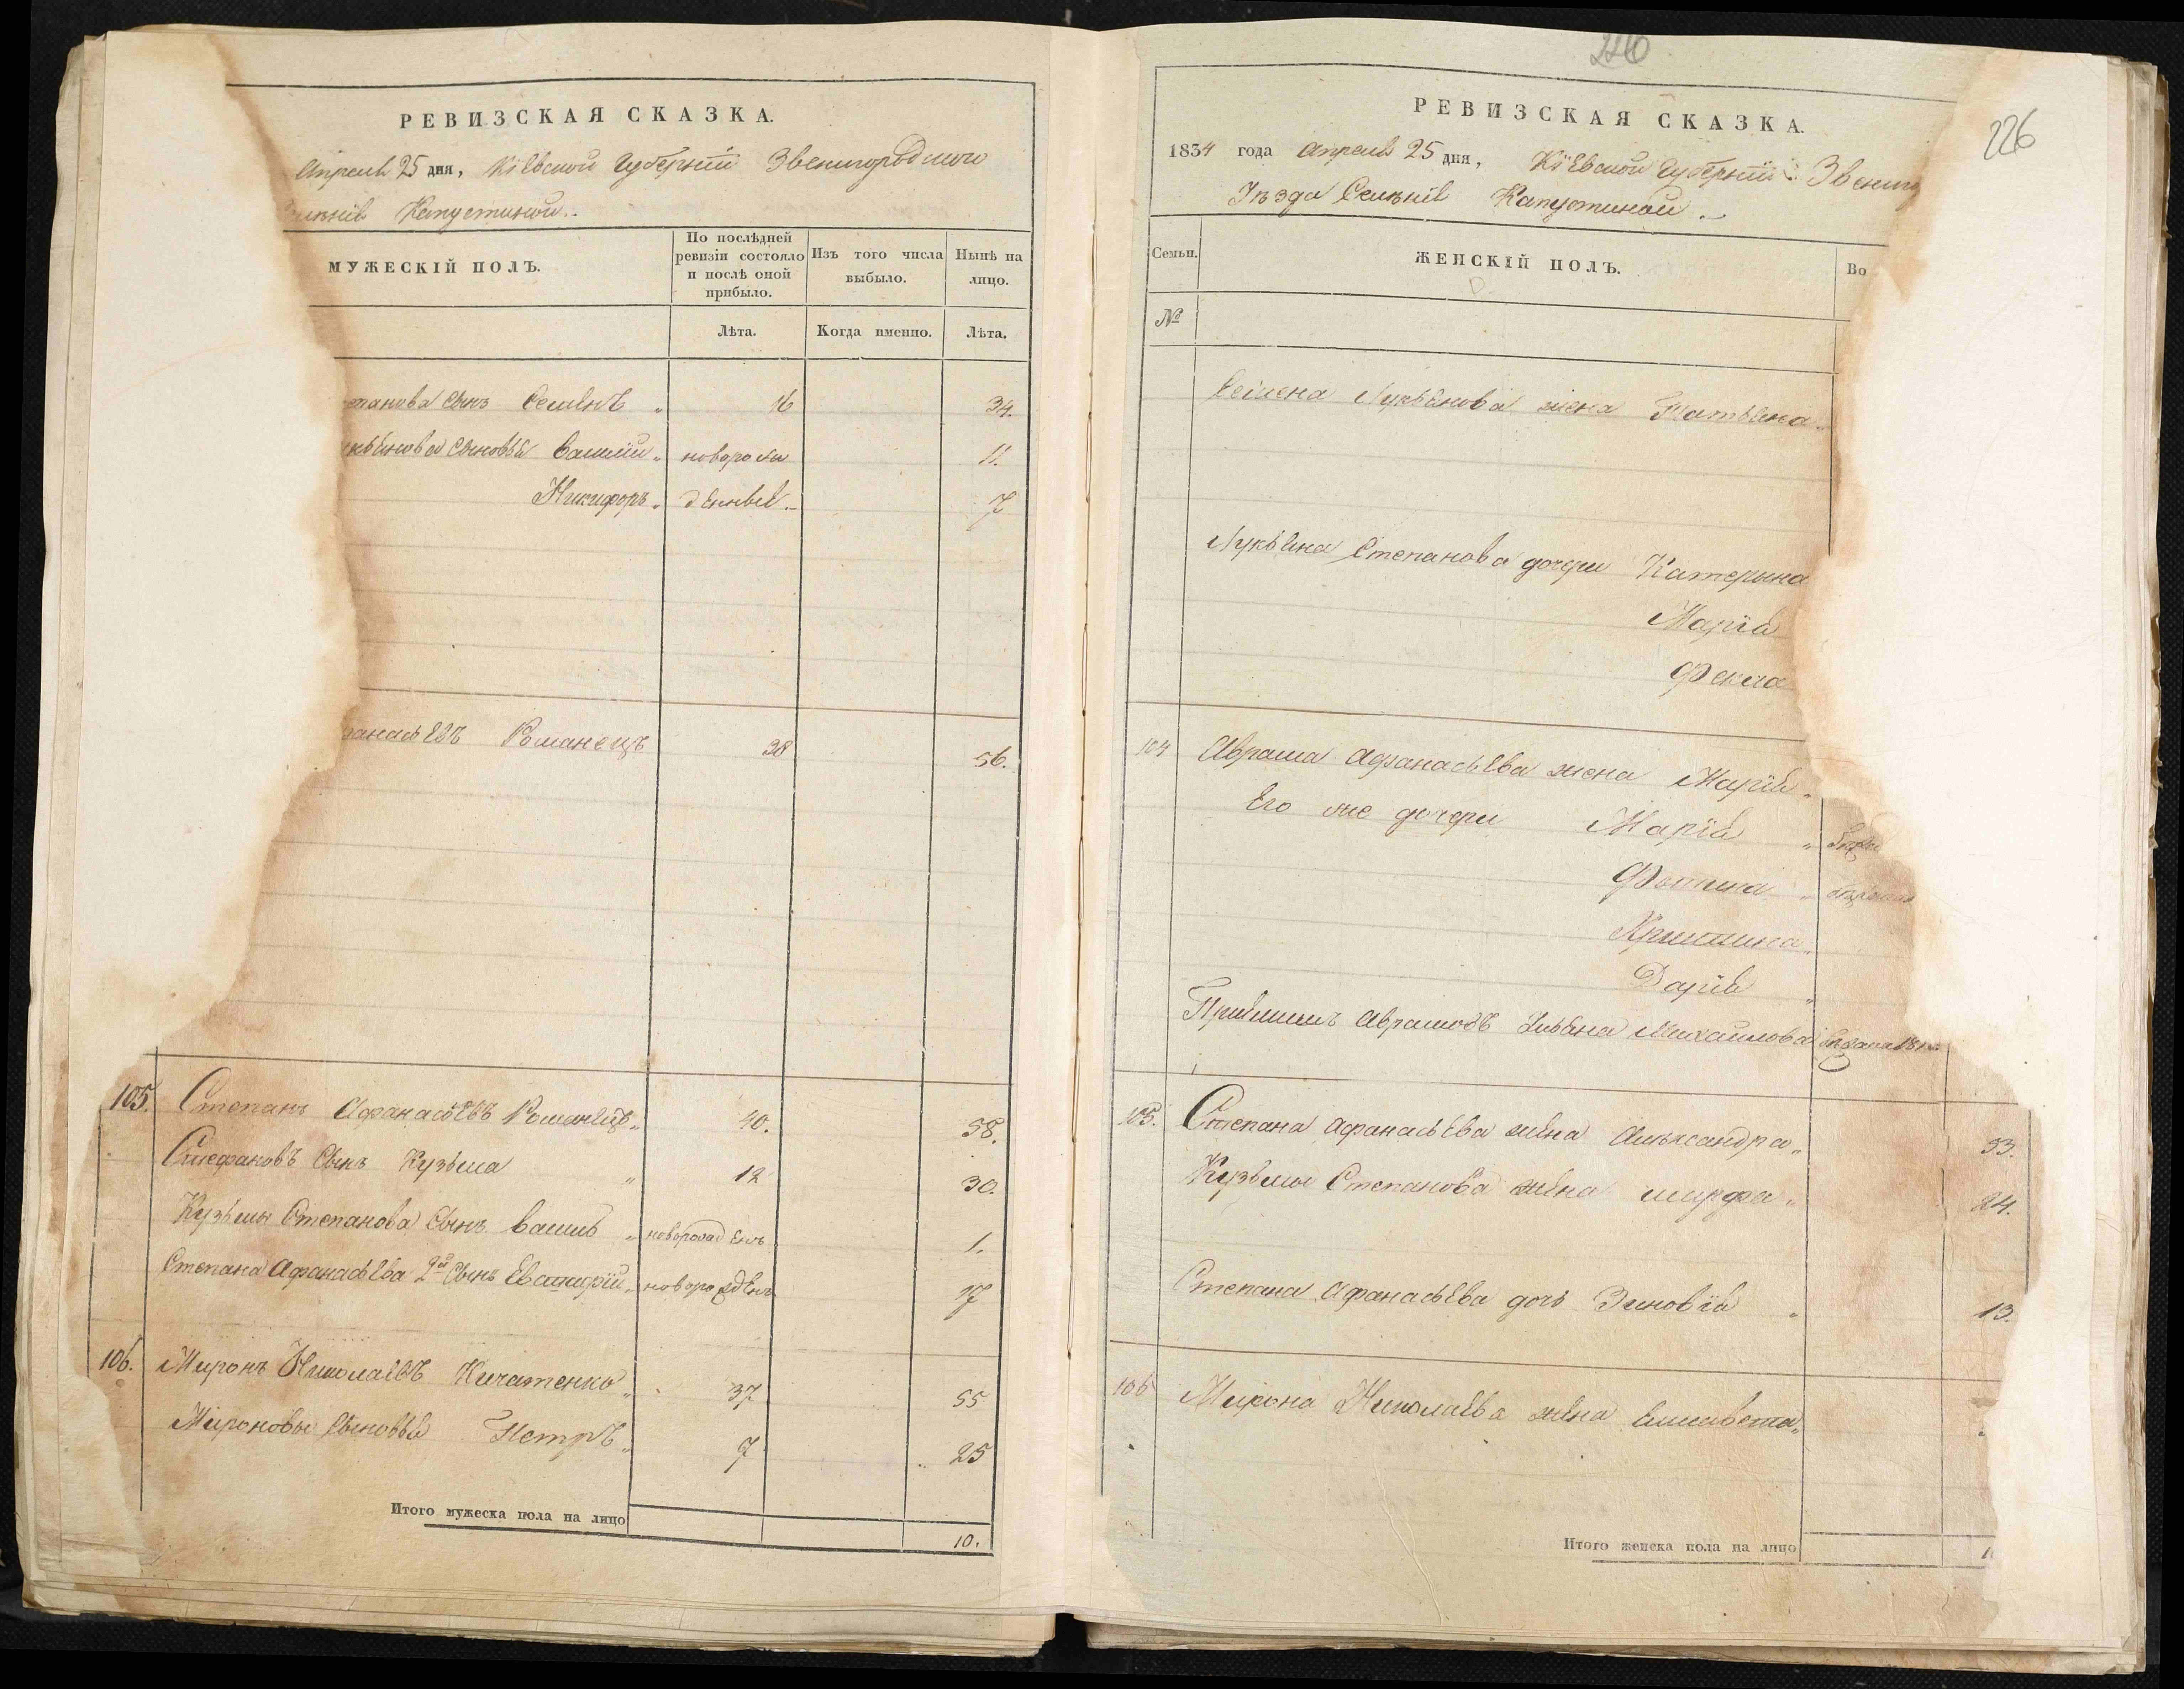 РЕВИЗСКАЯ СКАЗКА.
Апреля 25 дня, Кіевской Губерніи Звенигородского
Капустиной
МУЖЕСКІЙ ПОЛЪ.
По послѣдней ревизіи состояло и послѣ оной прибыло.
Изъ того числа выбыло.
Нынѣ на лицо.
Лѣта.
Когда именно.
Лѣта.
сынъ Семенъ 16 34.
сыновья Василий новорож 11.
Никифоръ денные 7
Романецъ 38 56.
105. Степанъ Афанасьевъ Романецъ 40. 58.
Стефановъ сынъ Кузьма 12 30.
Кузьмы Степанова сынъ Василь новорожденъ 1.
Степана Афанасьева 2й сынъ новорожденъ 17
106. Миронъ Николаевъ 37 55
Мироновы сыновья Петръ 7 25
Итого мужеска пола на лицо
10.
226
226
РЕВИЗСКАЯ СКАЗКА.
1834 года Апреля 25 дня, Кіевской Губерніи Звениг
Уезда Селенія Капустиной
Семьи.
ЖЕНСКІЙ ПОЛЪ.
Во
№
Семена Лукьянова жена Татьяна
Лукьяна Степанова дочери Катерына
Марія
Фекла
104 Абрама Афанасьева жена Марія
Его же дочери Марія
Христина
Дарія
Михайлова
105. Степана Афанасьева жена Александра 53.
Кузьмы Степанова жена Марфа 24.
Степана Афанасьева дочь Зиновія 13.
106 Мирона Николаева жена Елисавета
Итого женска пола на лицо